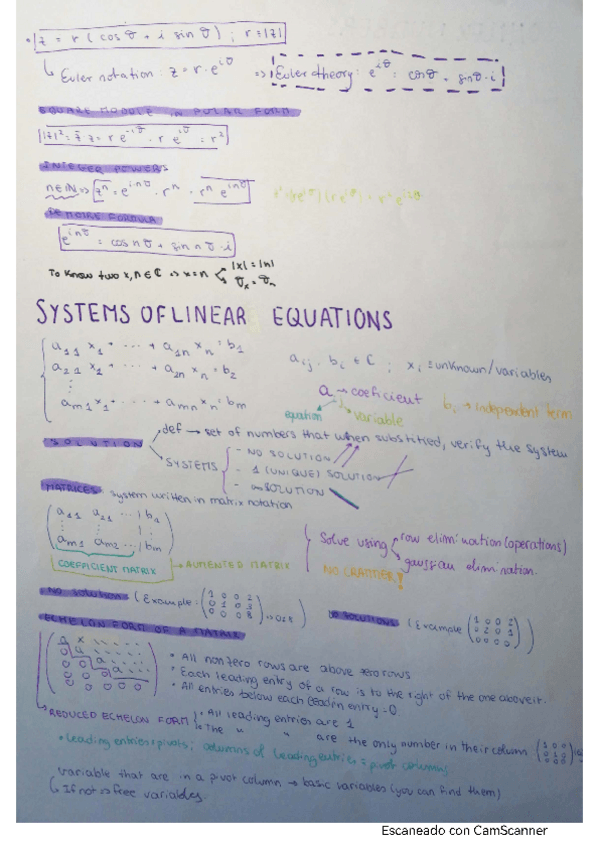 • z = r (cos θ + i sin θ) ; r = |z|
↳ Euler notation: z = r · e^{iθ} ⇒ Euler theory: e^{iθ} = cosθ + sinθ · i
SQUARE MODULE IN POLAR FORM
|z|² = z̄ z = r e^{-iθ} · r e^{iθ} = r²
INTEGER POWERS
n∈ℕ ⇒ zⁿ = e^{inθ} · rⁿ = rⁿ e^{inθ}
DE MOIRE FORMULA
e^{inθ} = cos nθ + sin nθ · i
To know two x, n ∈ ℂ ⇒ x = n < |x| = |n|
θₓ = θₙ
SYSTEMS OF LINEAR EQUATIONS
a₁₁ x₁ + ··· + a₁ₙ xₙ = b₁
a₂₁ x₁ + ··· + a₂ₙ xₙ = b₂
⋮
aₘ₁ x₁ + ··· + aₘₙ xₙ = bₘ
aᵢⱼ , bᵢ ∈ ℂ ; xᵢ ≡ unknown/variables
a → coeficient
equation
variable
bᵢ → Independent term
SOLUTION
def → set of numbers that when substitied, verify the system
SYSTEMS
- NO SOLUTION
- 1 (UNIQUE) SOLUTION
- ∞ SOLUTION
MATRICES: system written in matrix notation
(a₁₁ a₂₁ ··· | b₁
⋮ ⋮ ⋮
aₘ₁ aₘ₂ ··· | bₘ)
COEFFICIENT MATRIX → AUMENTED MATRIX
Solve using row elimination (operations)
gaussian elimination.
NO CRAMMER!
NO SOLUTION (Example: (1 0 0 2
0 1 0 3
0 0 0 8) ⇒ 0≠8
∞ SOLUTIONS (Example (1 0 0 2
0 2 0 1
0 0 0 0))
ECHELON FORM OF A MATRIX
• All non zero rows are above zero rows
• Each leading entry of a row is to the right of the one above it.
• All entries below each leadin entry = 0
↳ REDUCED ECHELON FORM • All leading entries are 1
• The " " are the only number in their column
• leading entries = pivots; columns of leading entries = pivot columns
Variable that are in a pivot column → basic variables (you can find them)
↳ If not ⇒ free variables.
Escaneado con CamScanner